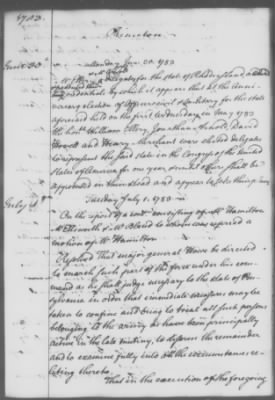 1783.
Princeton
June 30th
Monday June 30. 1783
Mr Ellery a delegate for the state of Rhode island,
credentials by which it appears that at the Anni-
versary election of Officers civil & military for the state
aforesaid held on the first Wednesday in May 1783
the honble William Ellery, Jonathan Arnold, David
Howell and Henry Marchant were elected delegates
to represent the said state in the Congress of the United
States of America for one year & until others shall be
appointed in their stead and appear to take their
July 1st
Tuesday July 1. 1783
On the report of a comee consisting of Mr Hamilton
Mr Ellsworth & Mr Bland to whom was referred a
motion of Mr Hamilton
Resolved That major general Howe be directed
to march such part of the force under his com-
mand as he shall judge necessary to the state of Pen-
sylvania in order that immediate measures may be
taken to confine and bring to trial all such persons
belonging to the army as have been principally
active in the late mutiny, to disarm the remainder
and to examine fully into all the circumstances re-
lating thereto.
That in the execution of the foregoing